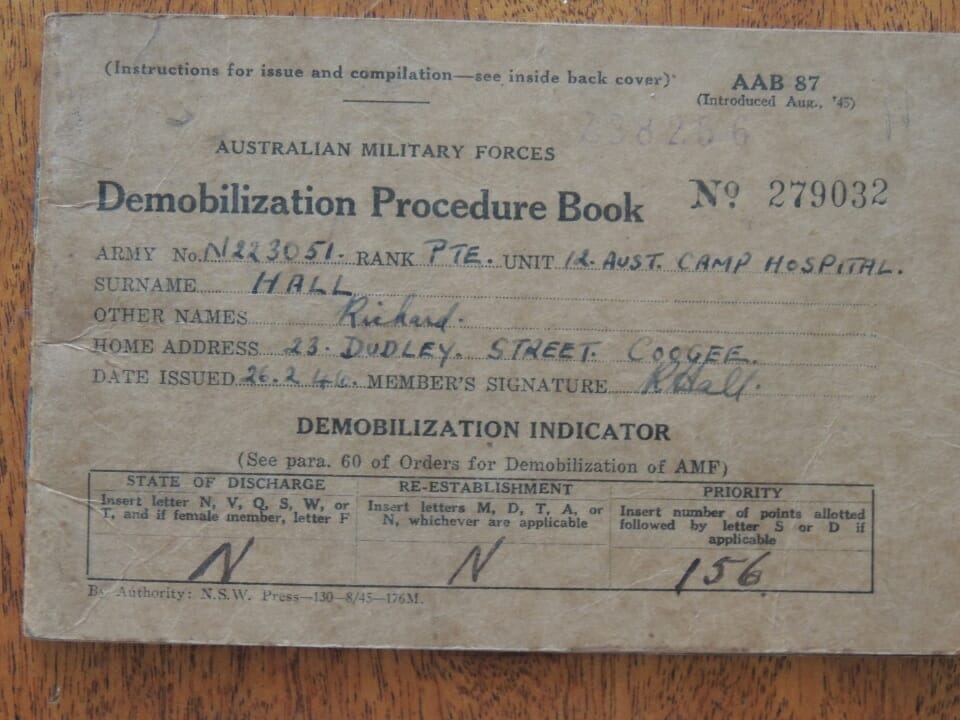 (Instructions for issue and compilation—see inside back cover)
AAB 87
(Introduced Aug., '45)
AUSTRALIAN MILITARY FORCES
Demobilization Procedure Book Nº 279032
ARMY No. N223051. RANK PTE. UNIT 12. AUST. CAMP HOSPITAL.
SURNAME HALL
OTHER NAMES Richard.
HOME ADDRESS 23. DUDLEY. STREET. COOGEE.
DATE ISSUED 26.2.46. MEMBER'S SIGNATURE RHall.
DEMOBILIZATION INDICATOR
(See para. 60 of Orders for Demobilization of AMF)
STATE OF DISCHARGE
Insert letter N, V, Q, S, W, or
T, and if female member, letter F
N
RE-ESTABLISHMENT
Insert letters M, D, T, A, or
N, whichever are applicable
N
PRIORITY
Insert number of points allotted
followed by letter S or D if
applicable
156
By Authority: N.S.W. Press—130—8/45—176M.